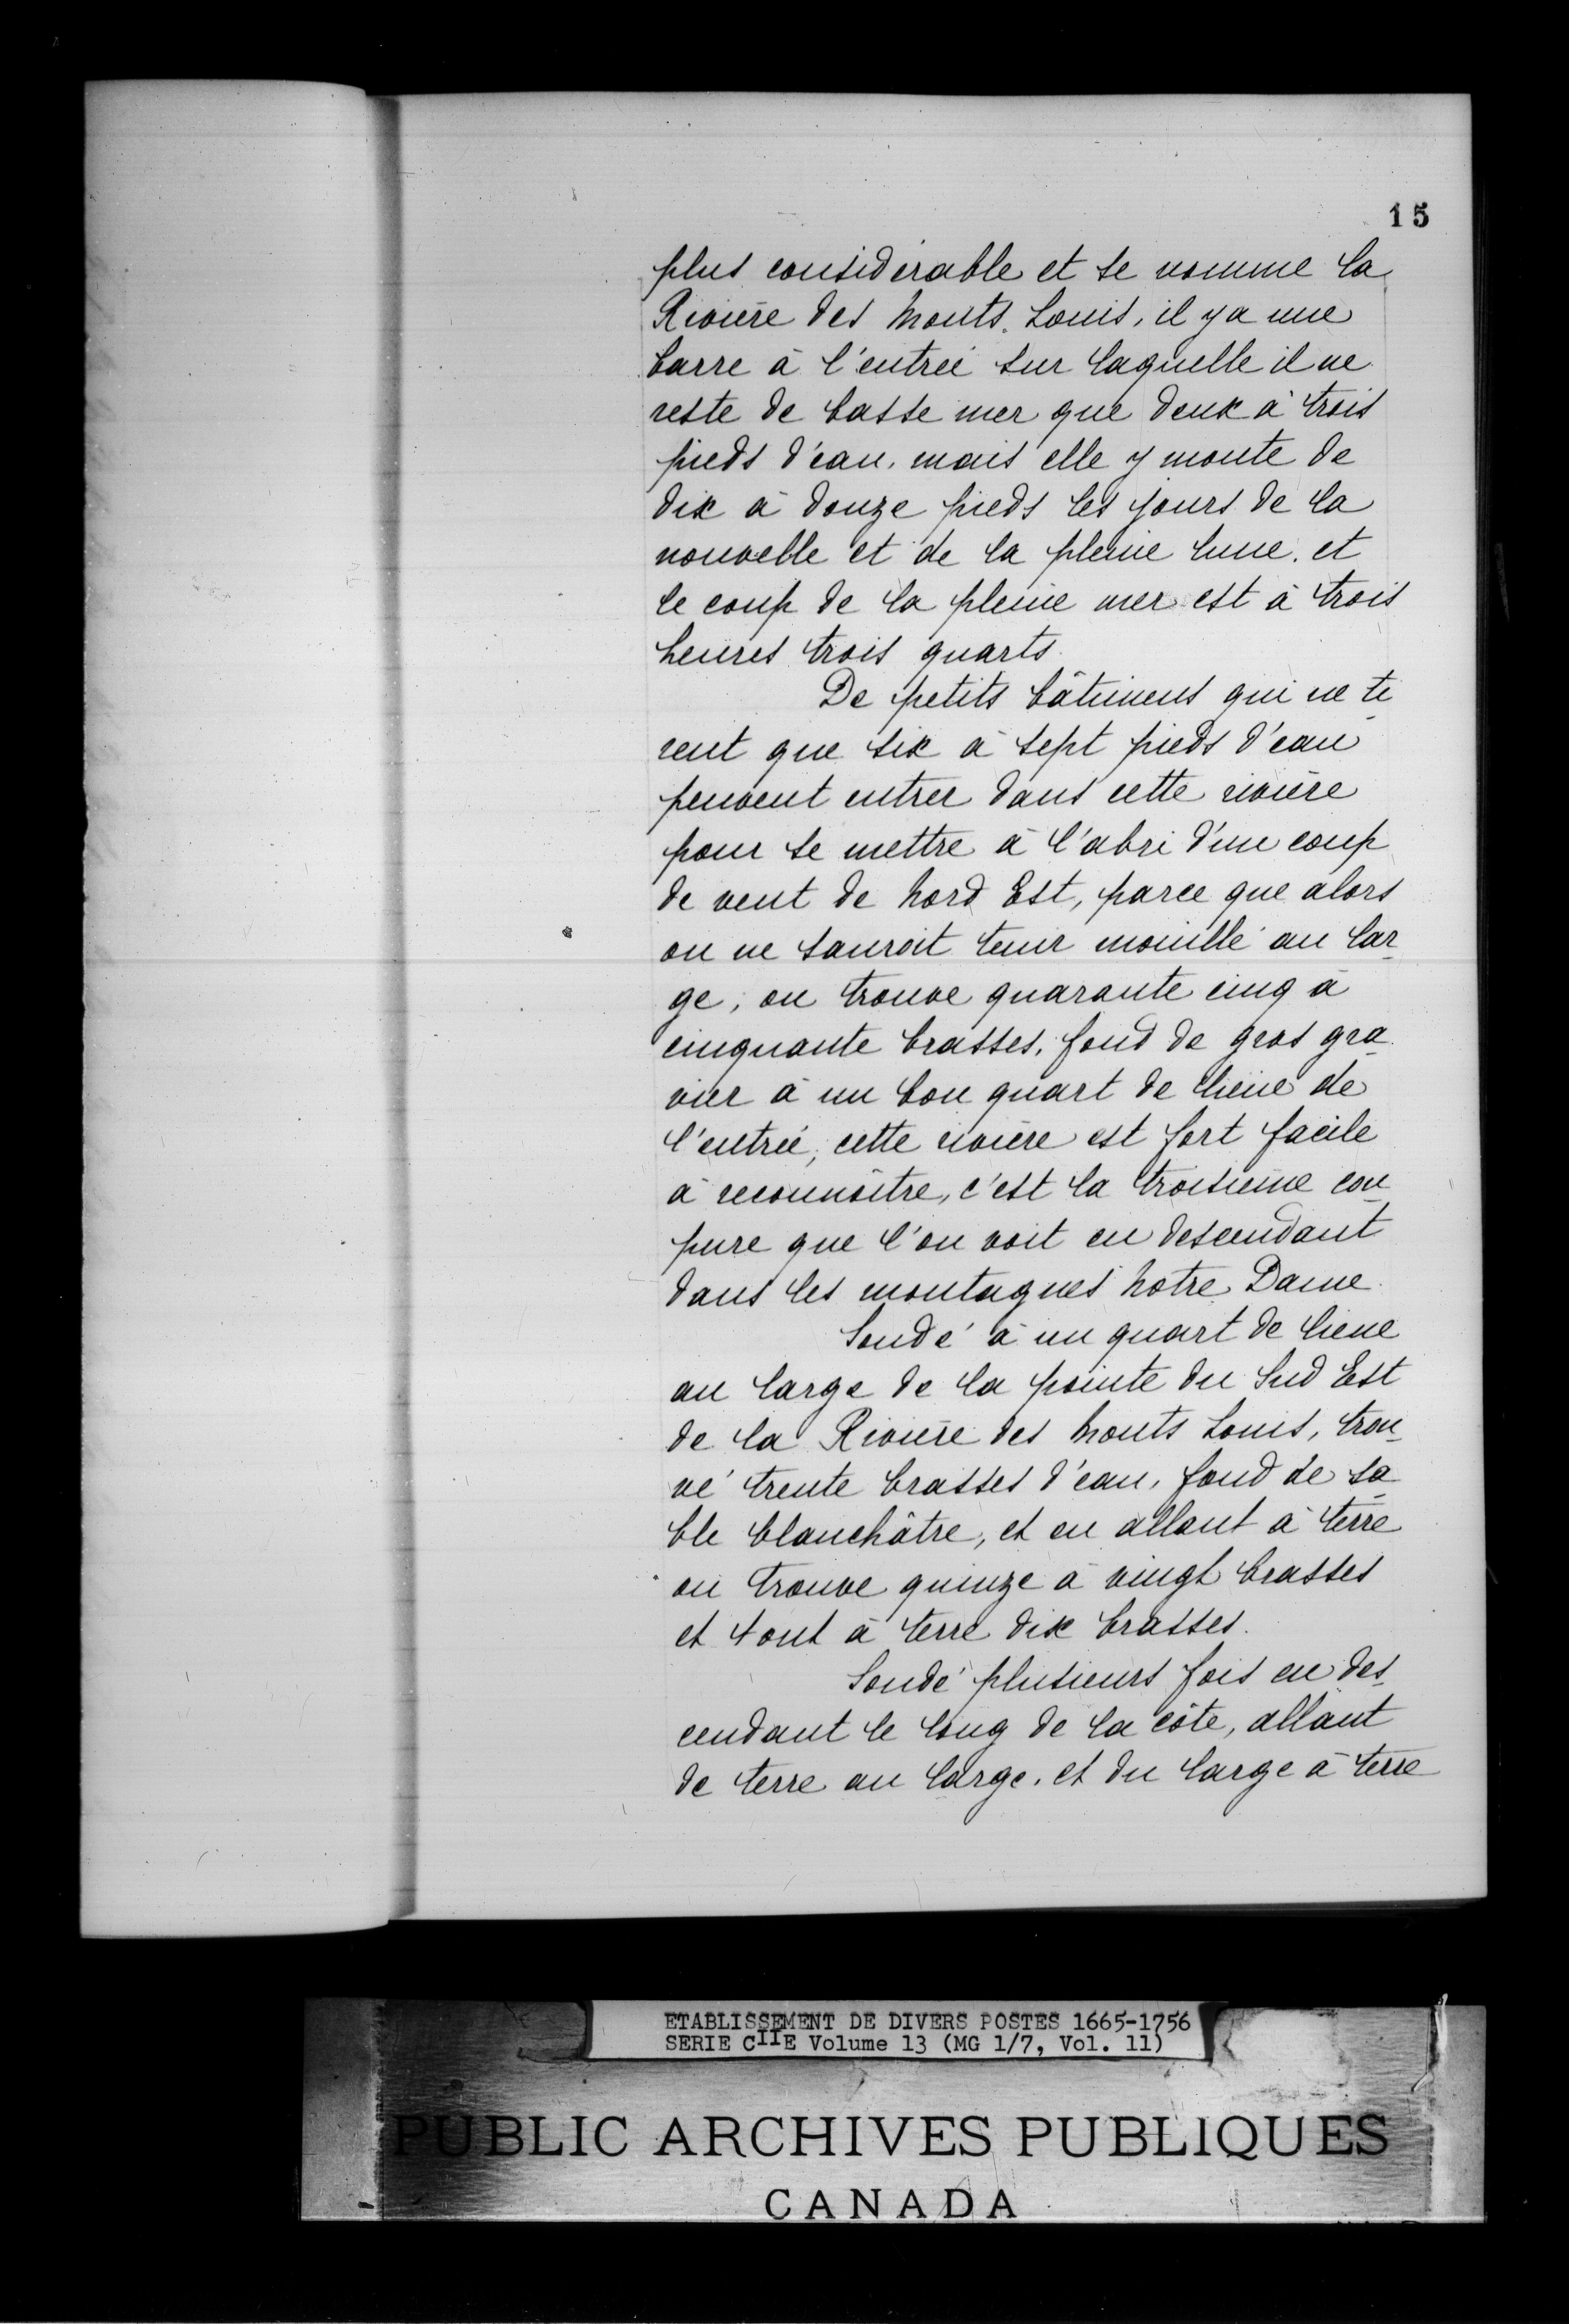 15
plus considérable et se nomme la
Rivière des Monts Louis, il y a une
barre à l'entrée sur laquelle il ne
reste de basse mer que deux à trois
pieds d'eau, mais elle y monte de
dix à douze pieds les jours de la
nouvelle et de la pleine lune, et
le coup de la pleine mer est à trois
heures trois quarts.
De petits bâtimens qui ne ti
rent que six à sept pieds d'eau
peuvent entrer dans cette rivière
pour se mettre à l'abri d'un coup
de vent de Nord Est, parce que alors
on ne sauroit tenir mouillé au lar
ge, on trouve quarante cinq à
cinquante brasses, fond de gros gra
vier à un bon quart de lieue de
l'entrée, cette rivière est fort facile
à reconnoître, c'est la troisième cou
pure que l'on voit en descendant
dans les montagnes Notre Dame.
Sondé à un quart de lieue
au large de la pointe du Sud Est
de la Rivière des Monts Louis, trou
vé trente brasses d'eau, fond de sa
ble blanchâtre, et en allant à terre
on trouve quinze à vingt brasses
et tout à terre dix brasses.
Sondé plusieurs fois en des
cendant le long de la côte, allant
de terre au large, et du large à terre
ETABLISSEMENT DE DIVERS POSTES 1665-1756
SERIE CIIE Volume 13 (MG 1/7, Vol. 11)
PUBLIC ARCHIVES PUBLIQUES
CANADA